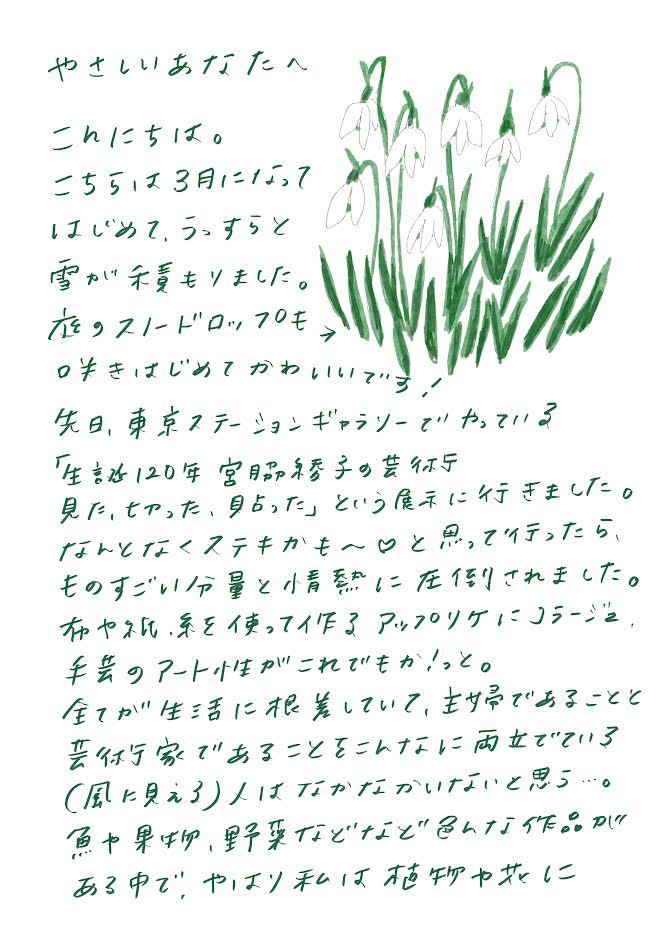 やさしいあなたへ
こんにちは。
こちらは3月になって
はじめて、うっすらと
雪が積もりました。
庭のスノードロップも→
咲きはじめてかわいいです!
先日、東京ステーションギャラリーでやっている
「生誕120年 宮脇綾子の芸術
見た、切った、貼った」という展示に行きました。
なんとなくステキかも〜♡と思って行ったら、
ものすごい分量と情熱に圧倒されました。
布や紙、糸を使って作るアップリケにコラージュ、
手芸のアート性がこれでもか!っと。
全てが生活に根差していて、主婦であることと
芸術家であることをこんなに両立でている
(風に見える)人はなかなかいないと思う…。
魚や果物、野菜などなど色んな作品が
ある中で、やはり私は植物や花に